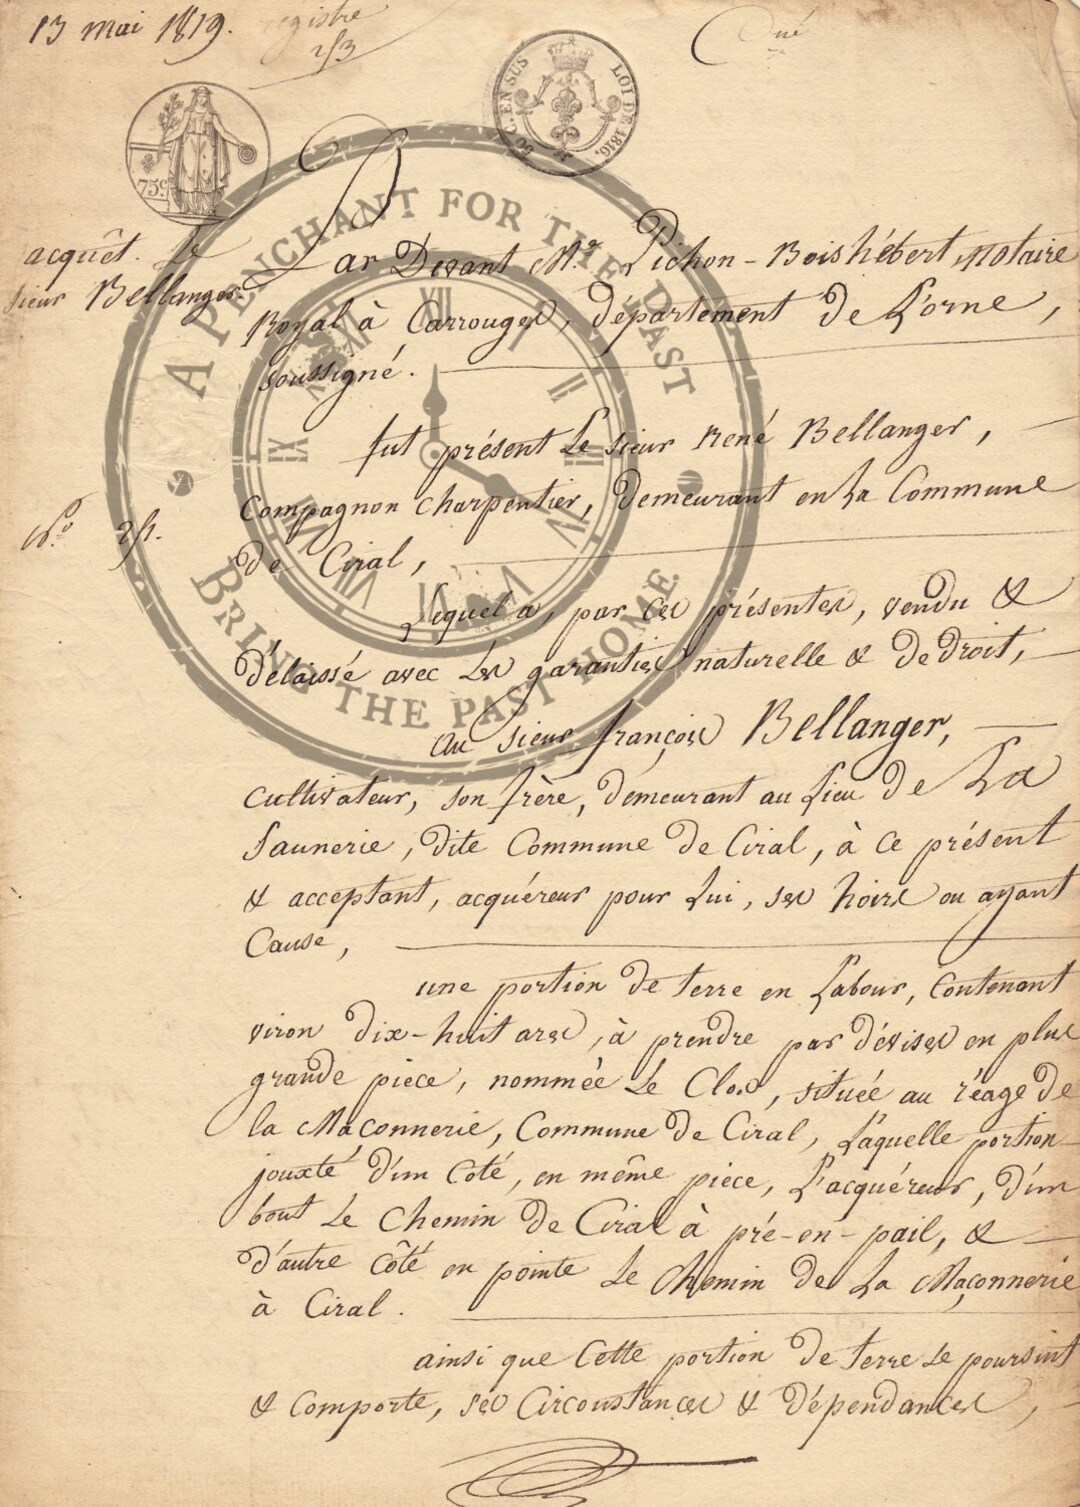 13 mai 1819.
registre
2/3
75c
C. EN SUS
LOI DE 1816.
acquêt. Le
sieur Bellanger
A PENCHANT FOR THE PAST
BRING THE PAST HOME
XII I II III IV V VI VII VIII IX X XI
Par Devant Mr. Pichon-Boishébert, Notaire
Royal à Carrouges, département de L'orne,
soussigné.
fut présent Le sieur René Bellanger,
Compagnon charpentier, demeurant en La Commune
de Ciral,
Lequel a, par ces présentes, vendu &
délaissé avec Les garanties naturelle & de droit,
au sieur françois Bellanger,
cultivateur, son frère, demeurant au Lieu de La
Saunerie, dite Commune de Ciral, à ce présent
& acceptant, acquéreur pour Lui, ses hoirs ou ayant
Cause,
une portion de terre en Labour, Contenant
viron dix-huit ares, à prendre par dévises en plus
grande pièce, nommée Le Clos, située au réage de
la Maçonnerie, Commune de Ciral, Laquelle portion
jouxte d'un Coté, en même pièce, L'acquéreur, d'un
bout Le Chemin de Ciral à pré-en-pail, &
d'autre côté en pointe Le Chemin de La Maçonnerie
à Ciral.
ainsi que Cette portion de terre se poursuit
& Comporte, ses Circonstances & dépendances,